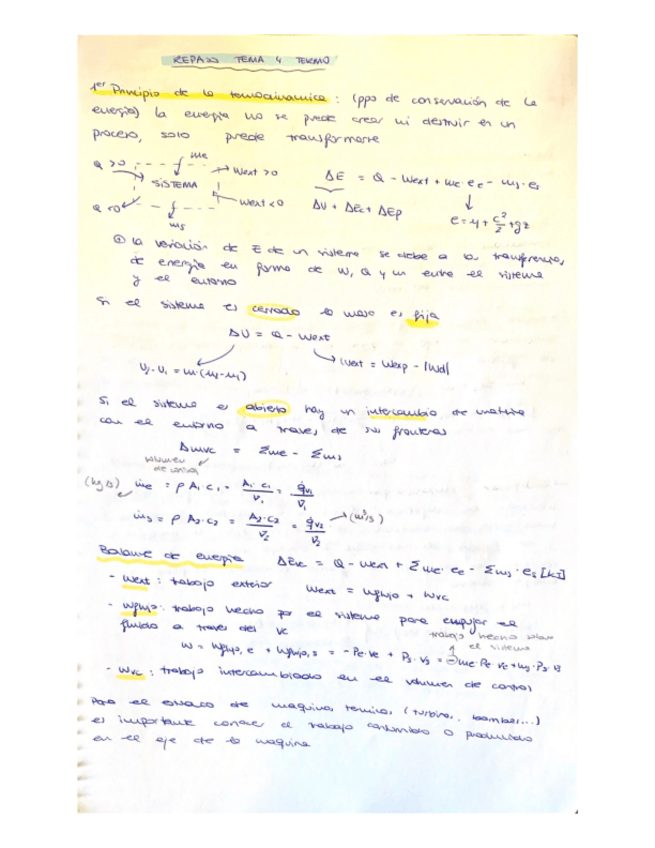 REPASO TEMA 4 TERMO
1er Principio de la termodinamica : (ppo de conservación de la
energía) la energía no se puede crear ni destruir en un
proceso, solo puede transformarse
Q >0 me Wext >0
SISTEMA
Q <0 Wext <0
ms
ΔE = Q - Wext + me·ee - ms·es
ΔU + ΔEc + ΔEp
e = u + c²/2 + gz
la variación de E de un sistema se debe a la transferencia,
de energía en forma de W, Q y m entre el sistema
y el entorno
Si el sistema es cerrado la masa es fija
ΔU = Q - Wext
Uf - Ui = m·(uf - ui)
Wext = Wexp - |Wd|
Si el sistema es abierto hay un intercambio de materia
con el entorno a traves de sus fronteras
Δmvc = Σme - Σms
volumen
de control
(kg/s) ṁe = ρ A1·c1 = A1·c1/V1 = q̇v1/V1
ṁs = ρ A2·c2 = A2·c2/V2 = q̇v2/V2 → (m³/s)
Balance de energia ΔEvc = Q - Wext + Σme·ee - Σms·es [kJ]
- Wext : trabajo exterior Wext = Wflujo + Wvc
- Wflujo: trabajo hecho por el sistema para empujar el
fluido a traves del VC
trabajo hecho sobre
el sistema
W = Wflujo,e + Wflujo,s = -Pe·Ve + Ps·Vs = -me·Pe·Ve + ms·Ps·Vs
- Wvc : trabajo intercambiado en el volumen de control
Para el de maquinas termicas (turbinas, bombas...)
es importante conocer el trabajo consumido o producido
en el eje de la maquina